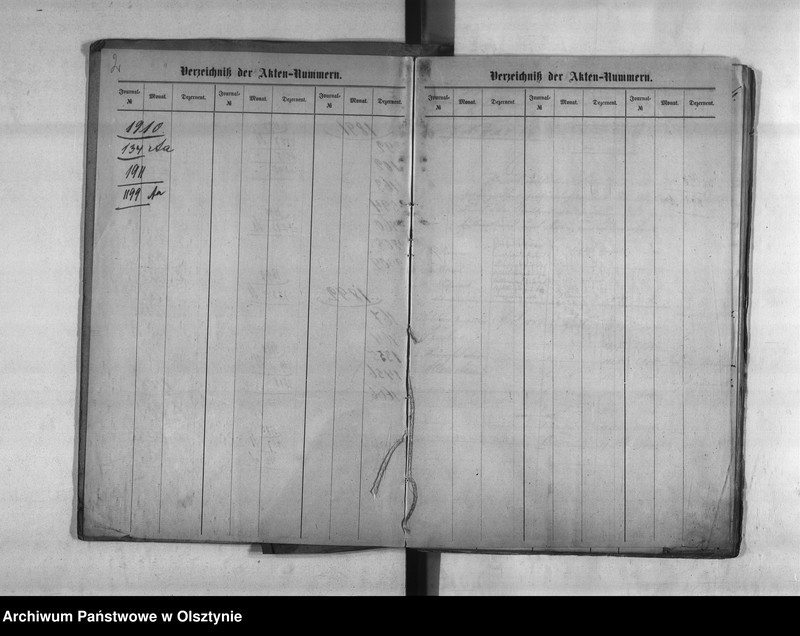 2
Verzeichniß der Akten-Nummern.
Journal-
№ Monat. Dezernent. Journal-
№ Monat. Dezernent. Journal-
№ Monat. Dezernent.
1910
134 Aa
1911
1199 Aa
Verzeichniß der Akten-Nummern.
Journal-
№ Monat. Dezernent Journal-
№ Monat. Dezernent. Journal-
№ Monat. Dezernent.
Archiwum Państwowe w Olsztynie